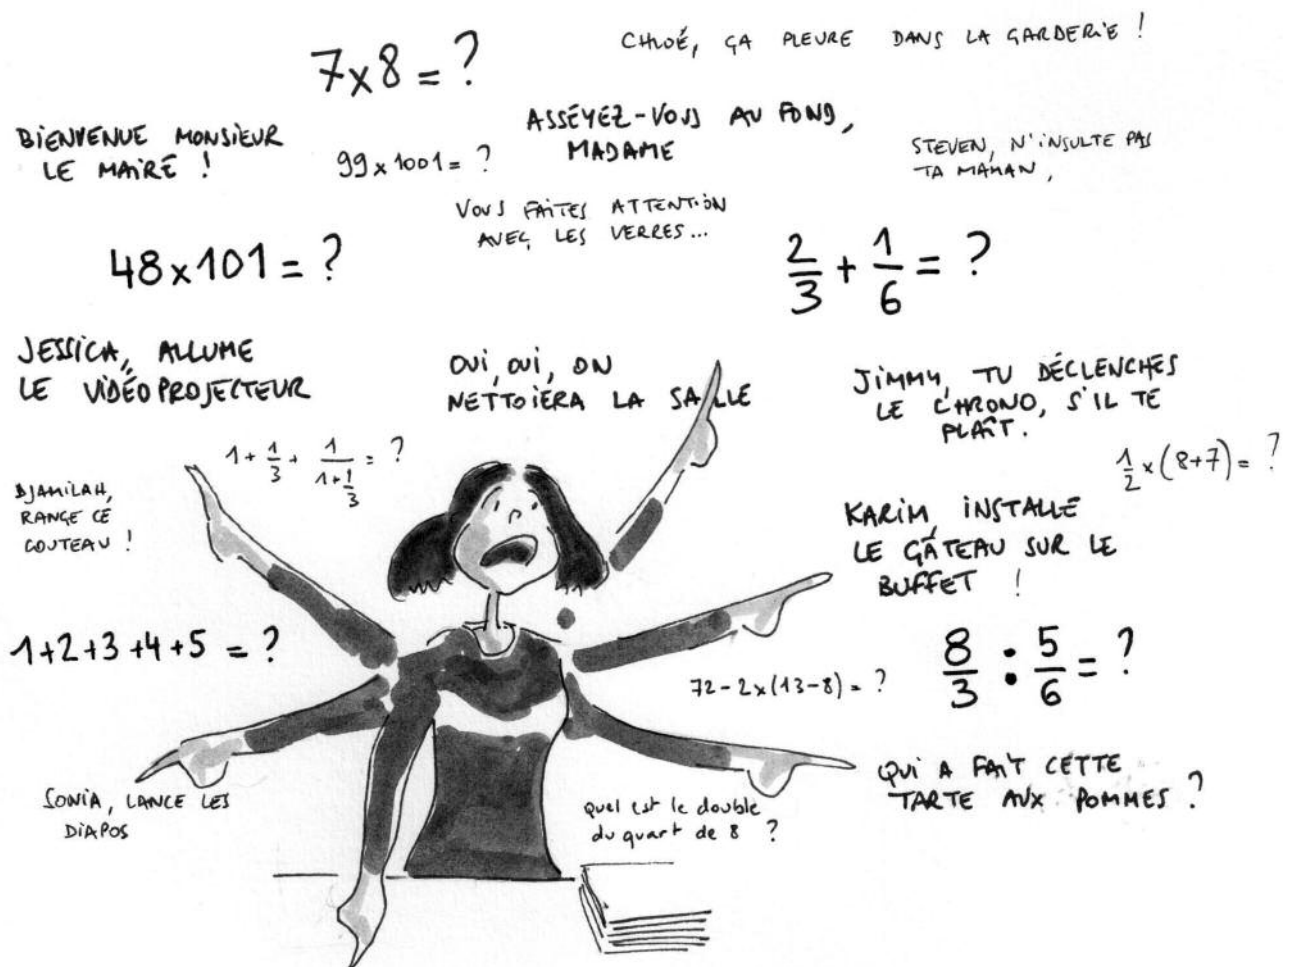 7x8 = ?
CHLOÉ, ÇA PLEURE DANS LA GARDERIE !
BIENVENUE MONSIEUR
LE MAIRE !
99 x 1001 = ?
ASSEYEZ-VOUS AU FOND,
MADAME
STEVEN, N'INSULTE PAS
TA MAMAN,
VOUS FAITES ATTENTION
AVEC LES VERRES...
48x101 = ?
2/3 + 1/6 = ?
JESSICA, ALLUME
LE VIDÉOPROJECTEUR
OUI, OUI, ON
NETTOIERA LA SALLE
JIMMY, TU DÉCLENCHES
LE CHRONO, S'IL TE
PLAÎT.
1 + 1/3 + 1/(1+1/3) = ?
1/2 x (8+7) = ?
DJAMILAH,
RANGE CE
COUTEAU !
KARIM, INSTALLE
LE GÂTEAU SUR LE
BUFFET !
1+2+3+4+5 = ?
72-2x(13-8) = ?
8/3 : 5/6 = ?
SONIA, LANCE LES
DIAPOS
Quel est le double
du quart de 8 ?
QUI A FAIT CETTE
TARTE AUX POMMES ?